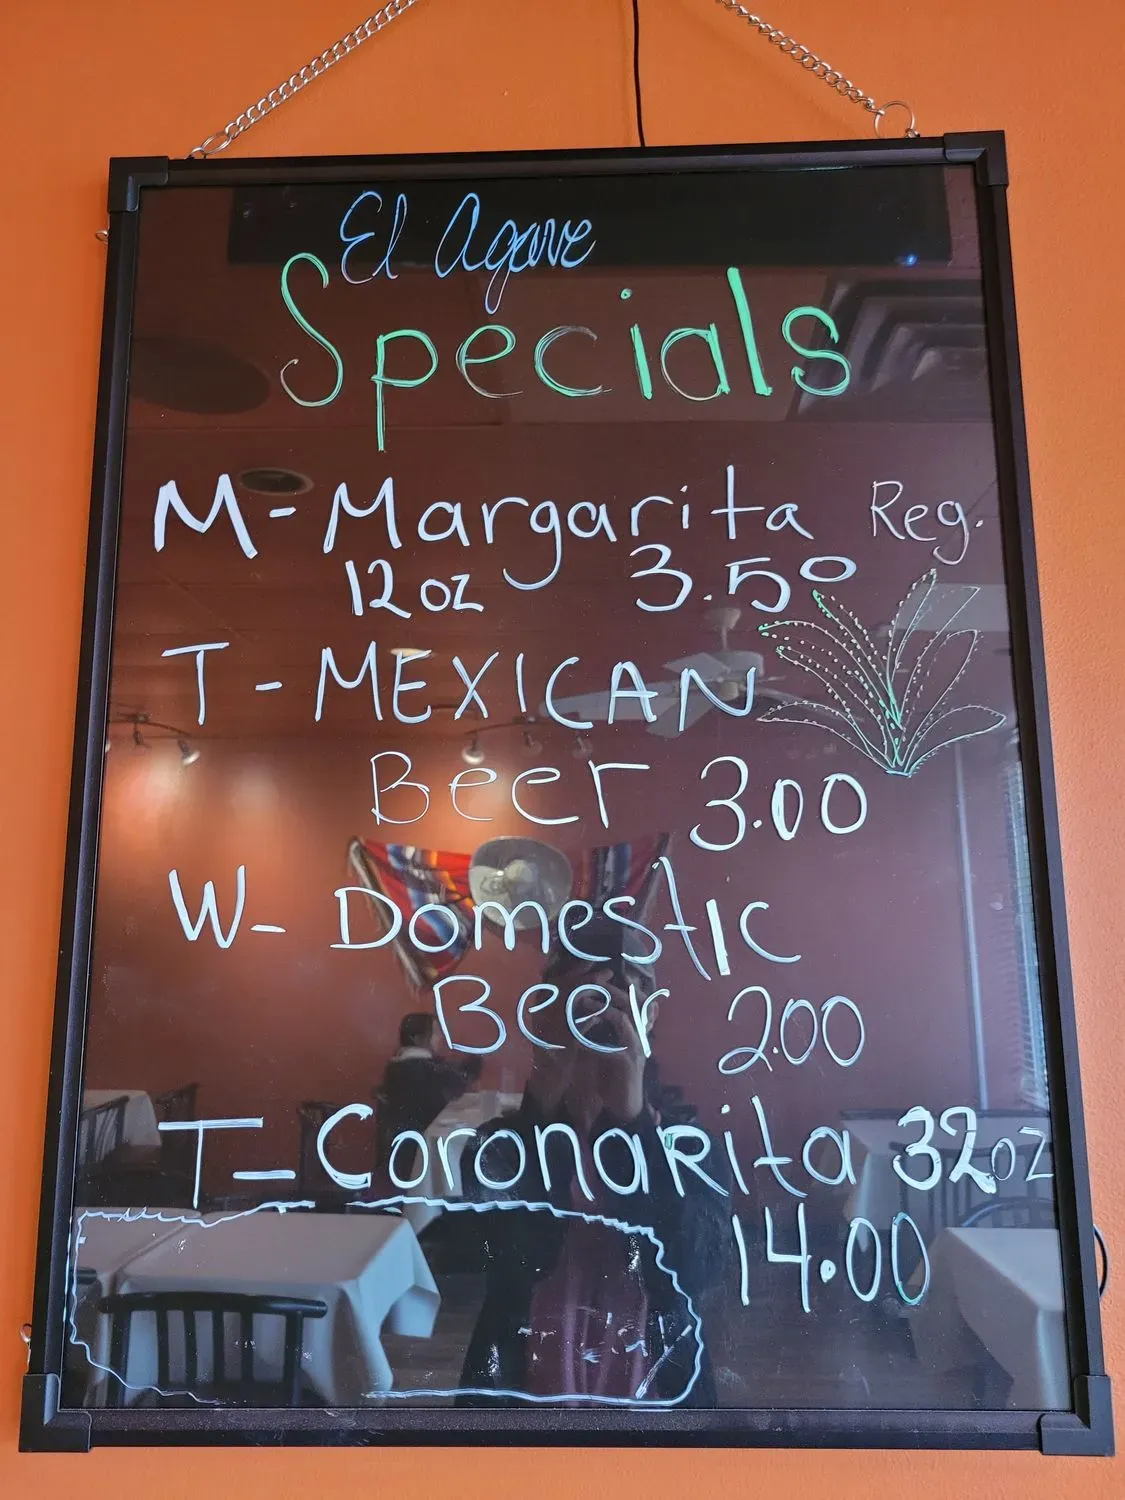 El Agave
Specials
M - Margarita Reg.
12 oz 3.50
T - MEXICAN
Beer 3.00
W - Domestic
Beer 2.00
T - CoronaRita 32oz
14.00